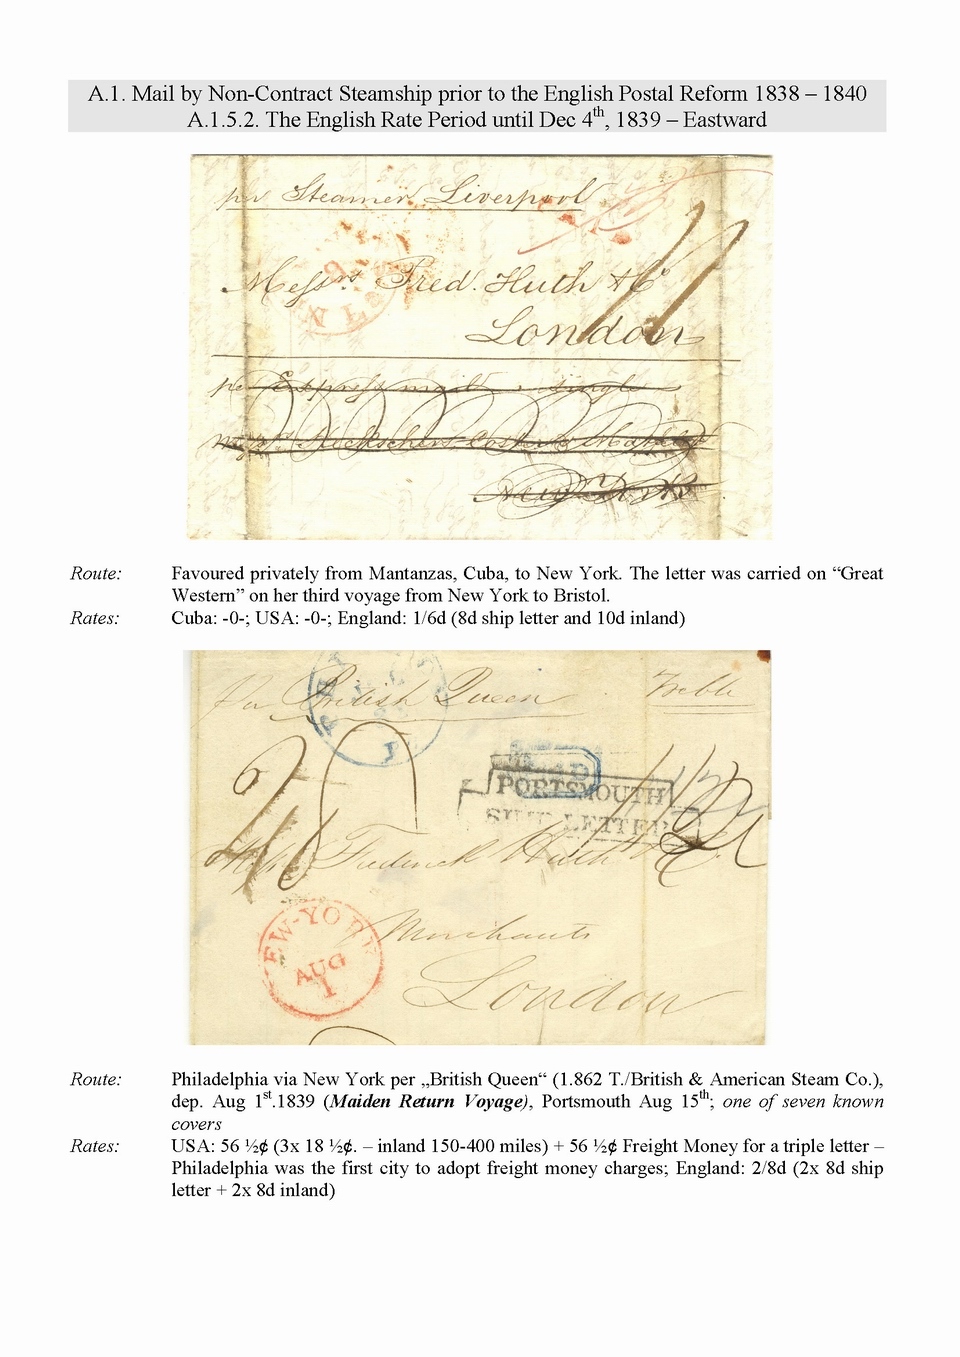 A.1. Mail by Non-Contract Steamship prior to the English Postal Reform 1838 – 1840
A.1.5.2. The English Rate Period until Dec 4th, 1839 – Eastward
per Steamer Liverpool
Messrs Fred. Huth & Co
London
per Express mail single
New York
Route: Favoured privately from Mantanzas, Cuba, to New York. The letter was carried on “Great
Western” on her third voyage from New York to Bristol.
Rates: Cuba: -0-; USA: -0-; England: 1/6d (8d ship letter and 10d inland)
per British Queen
Treble
PORTSMOUTH
SHIP LETTER
Messrs Frederick Huth & Co
Merchants
London
NEW-YORK
AUG
1
Route: Philadelphia via New York per „British Queen“ (1.862 T./British & American Steam Co.),
dep. Aug 1st.1839 (Maiden Return Voyage), Portsmouth Aug 15th; one of seven known
covers
Rates: USA: 56 ½¢ (3x 18 ½¢. – inland 150-400 miles) + 56 ½¢ Freight Money for a triple letter –
Philadelphia was the first city to adopt freight money charges; England: 2/8d (2x 8d ship
letter + 2x 8d inland)